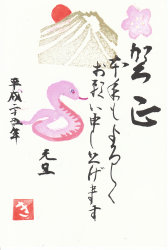 賀正
本年もよろしく
お願い申し上げます
平成二十五年
元旦
き